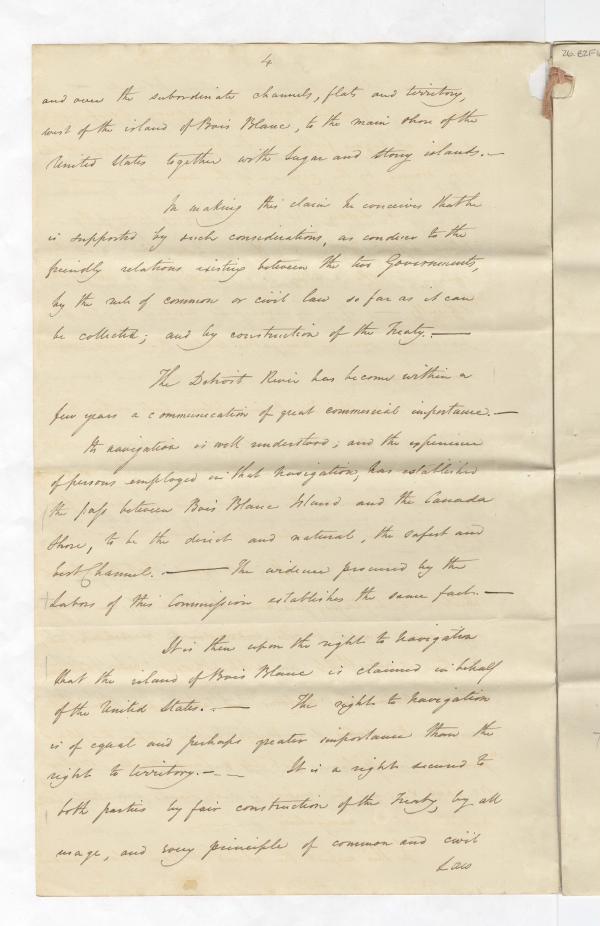 4
and over the subordinate channels, flats and territory,
west of the island of Bois Blanc, to the main shore of the
United States together with Sugar and Stony islands.—
In making this claim he conceives that he
is supported by such considerations, as conduce to the
friendly relations existing between the two Governments,
by the rule of common or civil law so far as it can
be collected; and by construction of the Treaty.—
The Detroit River has become within a
few years a communication of great commercial importance.—
Its navigation is well understood; and the experience
of persons employed in that navigation, has established
the pass between Bois Blanc Island and the Canada
Shore, to be the direct and natural, the safest and
best Channel.— The evidence procured by the
Labors of this Commission establishes the same fact.—
It is then upon the right to navigation
that the island of Bois Blanc is claimed in behalf
of the United States.— The right to navigation
is of equal and perhaps greater importance than the
right to territory.— It is a right secured to
both parties by fair construction of the Treaty, by all
usage, and every principle of common and civil
Law